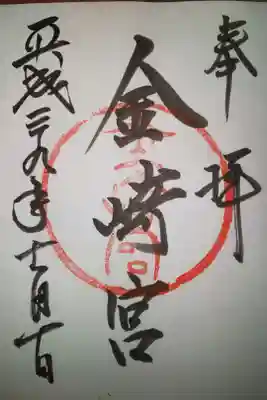 奉拝
金崎宮
平成二九年十一月十日